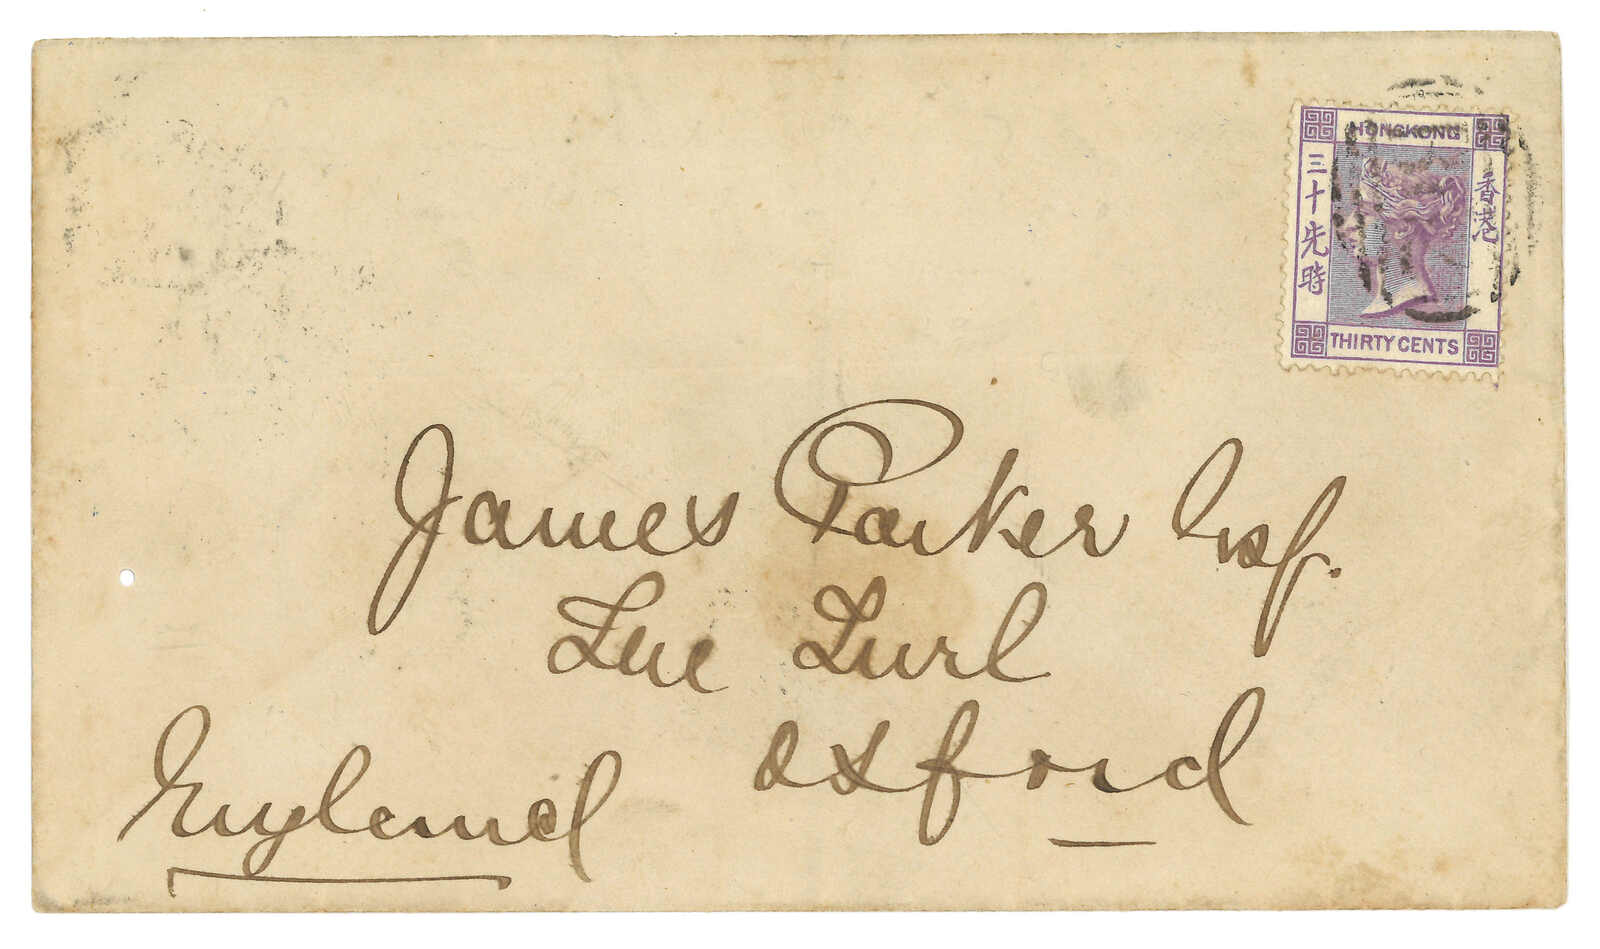 HONGKONG
三十先時
香港
THIRTY CENTS
James Parker Esq.
The Turl
Oxford
England